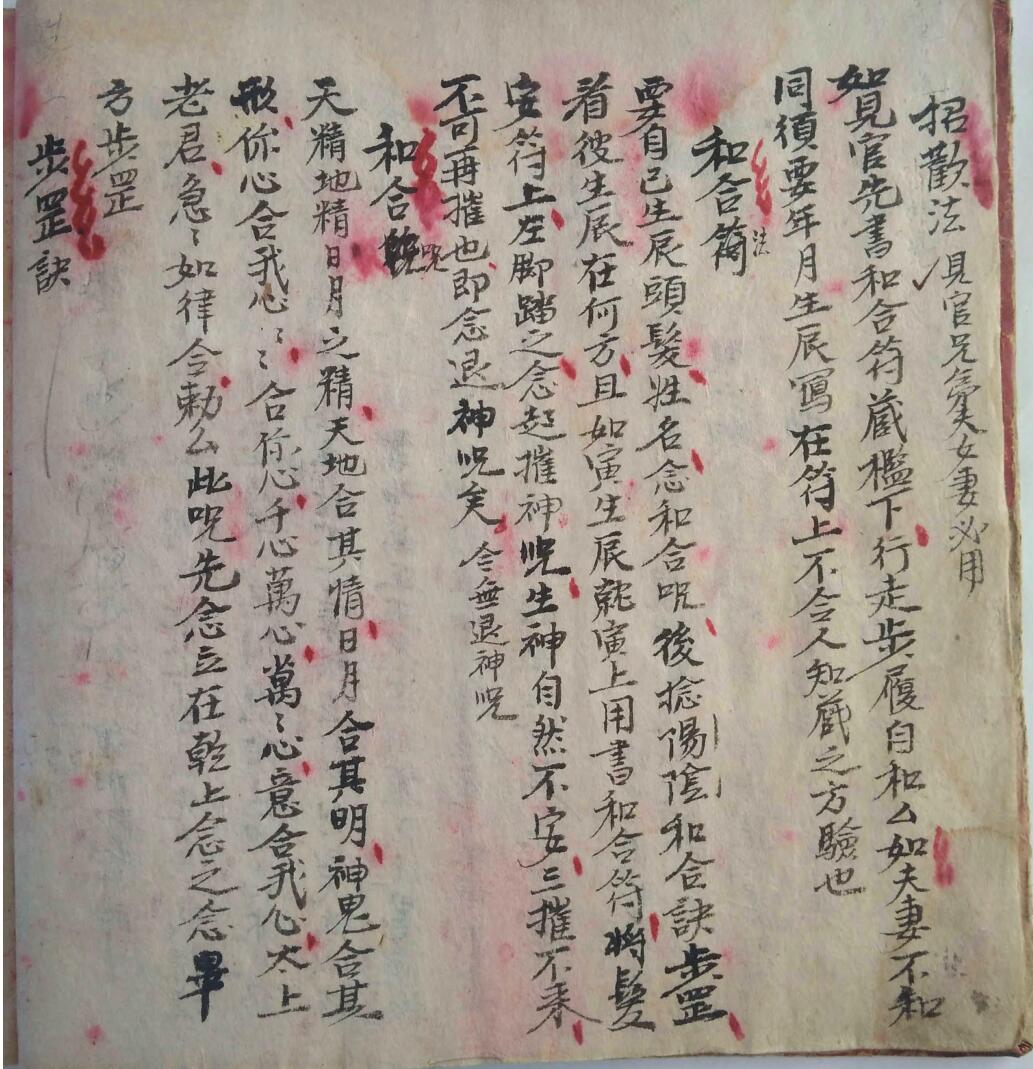 招歡法見官兄弟夫女妻必用
如見官先書和合符蔵檻下行走步履自和厶如夫妻不和
同須要年月生辰寫在符上不令人知蔵之方驗也
和合符法
要自己生辰頭髮姓名念和合咒後捻陽陰和合訣步罡
看彼生辰在何方且如寅生辰就寅上用書和合符將髮
安符上左脚踏之念起摧神咒生神自然不安三摧不来
不可再摧也即念退神咒矣令無退神咒
和合咒
天精地精日月之精天地合其情日月合其明神鬼合其
形你心合我心〻合你心千心萬心萬〻心意合我心太上
老君急〻如律令勅厶此咒先念立在乾上念之念畢
方步罡
步罡訣